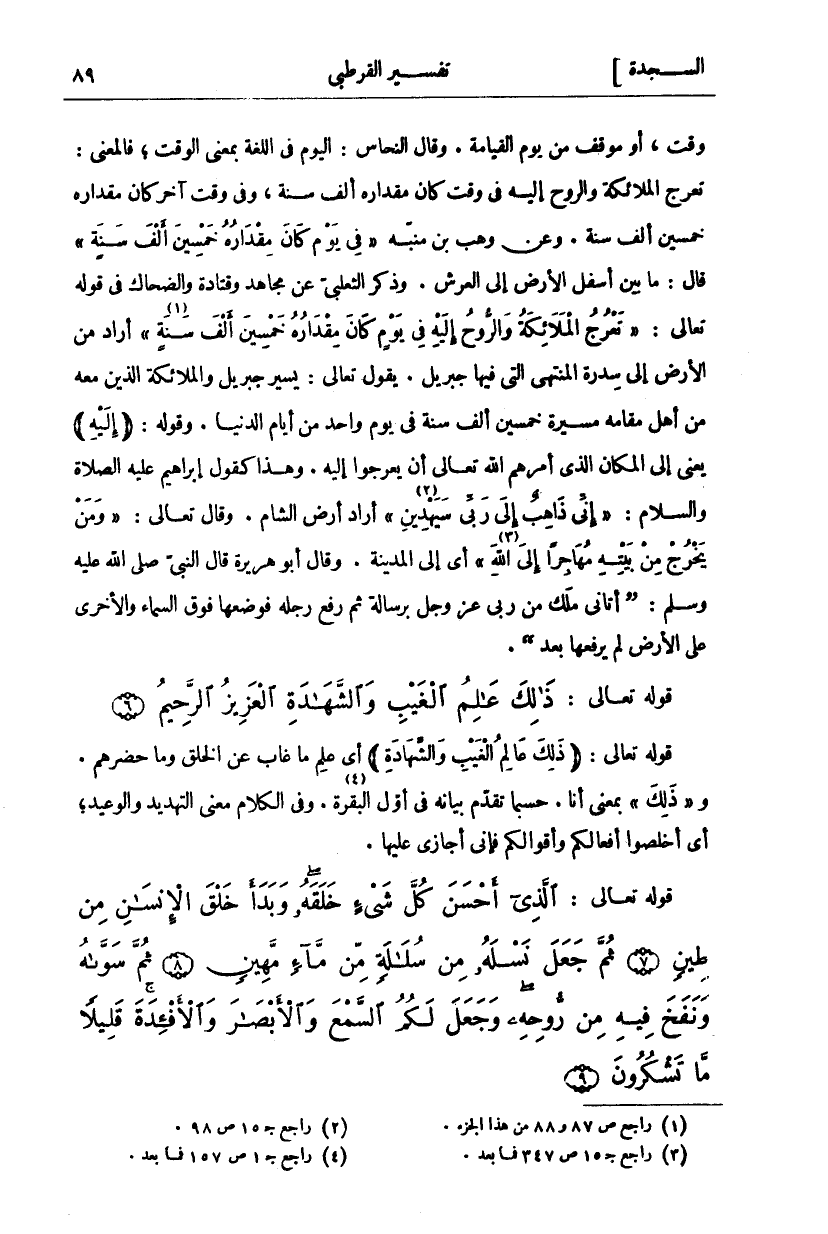 السجدة ] تفسير القرطبى ٨٩
وقت ، أو موقف من يوم القيامة . وقال النحاس : اليوم فى اللغة بمعنى الوقت ؛ فالمعنى :
تعرج الملائكة والروح إليه فى وقت كان مقداره ألف سنة ، وفى وقت آخر كان مقداره
خمسين ألف سنة . وعن وهب بن منبّه « فِي يَوْمٍ كَانَ مِقْدَارُهُ خَمْسِينَ أَلْفَ سَنَةٍ »
قال : ما بين أسفل الأرض إلى العرش . وذكر الثعلبىّ عن مجاهد وقتادة والضحاك فى قوله
تعالى : « تَعْرُجُ الْمَلَائِكَةُ وَالرُّوحُ إِلَيْهِ فِي يَوْمٍ كَانَ مِقْدَارُهُ خَمْسِينَ أَلْفَ سَنَةٍ (١) » أراد من
الأرض إلى سِدرة المنتهى التى فيها جبريل . يقول تعالى : يسير جبريل والملائكة الذين معه
من أهل مقامه مسيرة خمسين ألف سنة فى يوم واحد من أيام الدنيا . وقوله : ﴿ إِلَيْهِ ﴾
يعنى إلى المكان الذى أمرهم الله تعالى أن يعرجوا إليه . وهذا كقول إبراهيم عليه الصلاة
والسلام : « إِنِّى ذَاهِبٌ إِلَى رَبِّى سَيَهْدِينِ (٢) » أراد أرض الشام . وقال تعالى : « وَمَنْ
يَخْرُجْ مِنْ بَيْتِهِ مُهَاجِرًا إِلَى اللهِ (٣) » أى إلى المدينة . وقال أبو هريرة قال النبىّ صلى الله عليه
وسلم : ” أتانى ملَك من ربى عز وجل برسالة ثم رفع رجله فوضعها فوق السماء والأخرى
على الأرض لم يرفعها بعد “ .
قوله تعالى : ذَٰلِكَ عَـٰلِمُ ٱلْغَيْبِ وَٱلشَّهَـٰدَةِ ٱلْعَزِيزُ ٱلرَّحِيمُ ٦
قوله تعالى : ﴿ ذَلِكَ عَالِمُ الْغَيْبِ وَالشَّهَادَةِ ﴾ أى علِم ما غاب عن الخلق وما حضرهم .
و « ذَلِكَ » بمعنى أنا . حسبما تقدّم بيانه فى أوّل البقرة (٤) . وفى الكلام معنى التهديد والوعيد؛
أى أخلصوا أفعالكم وأقوالكم فإنى أجازى عليها .
قوله تعالى : ٱلَّذِىٓ أَحْسَنَ كُلَّ شَىْءٍ خَلَقَهُۥ ۖ وَبَدَأَ خَلْقَ ٱلْإِنسَـٰنِ مِن
طِينٍ ٧ ثُمَّ جَعَلَ نَسْلَهُۥ مِن سُلَـٰلَةٍ مِّن مَّآءٍ مَّهِينٍ ٨ ثُمَّ سَوَّىٰهُ
وَنَفَخَ فِيهِ مِن رُّوحِهِۦ ۖ وَجَعَلَ لَكُمُ ٱلسَّمْعَ وَٱلْأَبْصَـٰرَ وَٱلْأَفْـِٔدَةَ ۚ قَلِيلًا
مَّا تَشْكُرُونَ ٩
(١) راجع ص ٨٧ و ٨٨ من هذا الجزء . (٢) راجع جـ ١٥ ص ٩٨ .
(٣) راجع جـ ١٥ ص ٣٤٧ فما بعد . (٤) راجع جـ ١ ص ١٥٧ فما بعد .